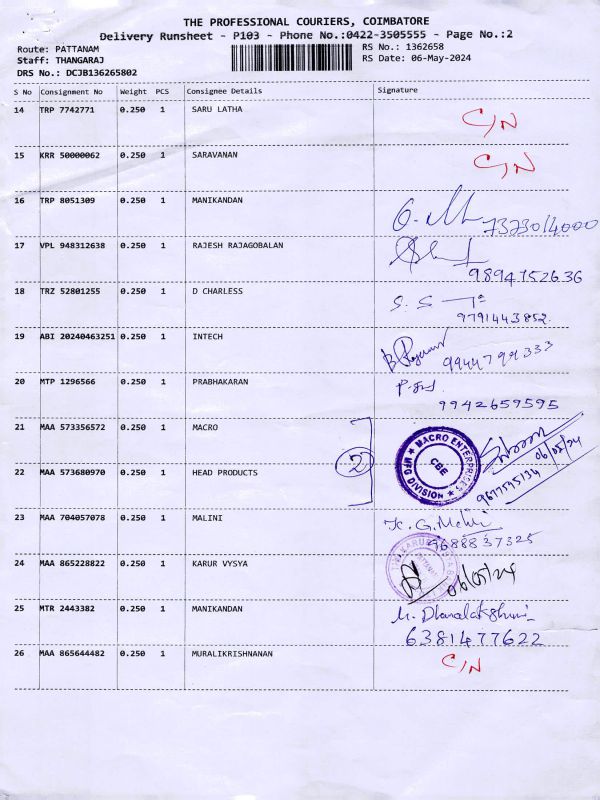 THE PROFESSIONAL COURIERS, COIMBATORE
Delivery Runsheet - P103 - Phone No.:0422-3505555 - Page No.:2
Route: PATTANAM
RS No.: 1362658
Staff: THANGARAJ
RS Date: 06-May-2024
DRS No.: DCJB136265802
S No Consignment No Weight PCS Consignee Details Signature
14 TRP 7742771 0.250 1 SARU LATHA C/N
15 KRR 50000062 0.250 1 SARAVANAN C/N
16 TRP 8051309 0.250 1 MANIKANDAN
7373014000
17 VPL 948312638 0.250 1 RAJESH RAJAGOBALAN
9894752636
18 TRZ 52801255 0.250 1 D CHARLESS
9791443852
19 ABI 20240463251 0.250 1 INTECH
9944799333
20 MTP 1296566 0.250 1 PRABHAKARAN
9942659595
21 MAA 573356572 0.250 1 MACRO
MACRO ENTERPRISES
CBE
MFG DIVISION
06/05/24
9677595134
2
22 MAA 573680970 0.250 1 HEAD PRODUCTS
23 MAA 704057078 0.250 1 MALINI
K. G. Malini
9688837325
24 MAA 865228822 0.250 1 KARUR VYSYA
06/05/24
25 MTR 2443382 0.250 1 MANIKANDAN
M. Dhanalakshmi
6381477622
26 MAA 865644482 0.250 1 MURALIKRISHNANAN C/N